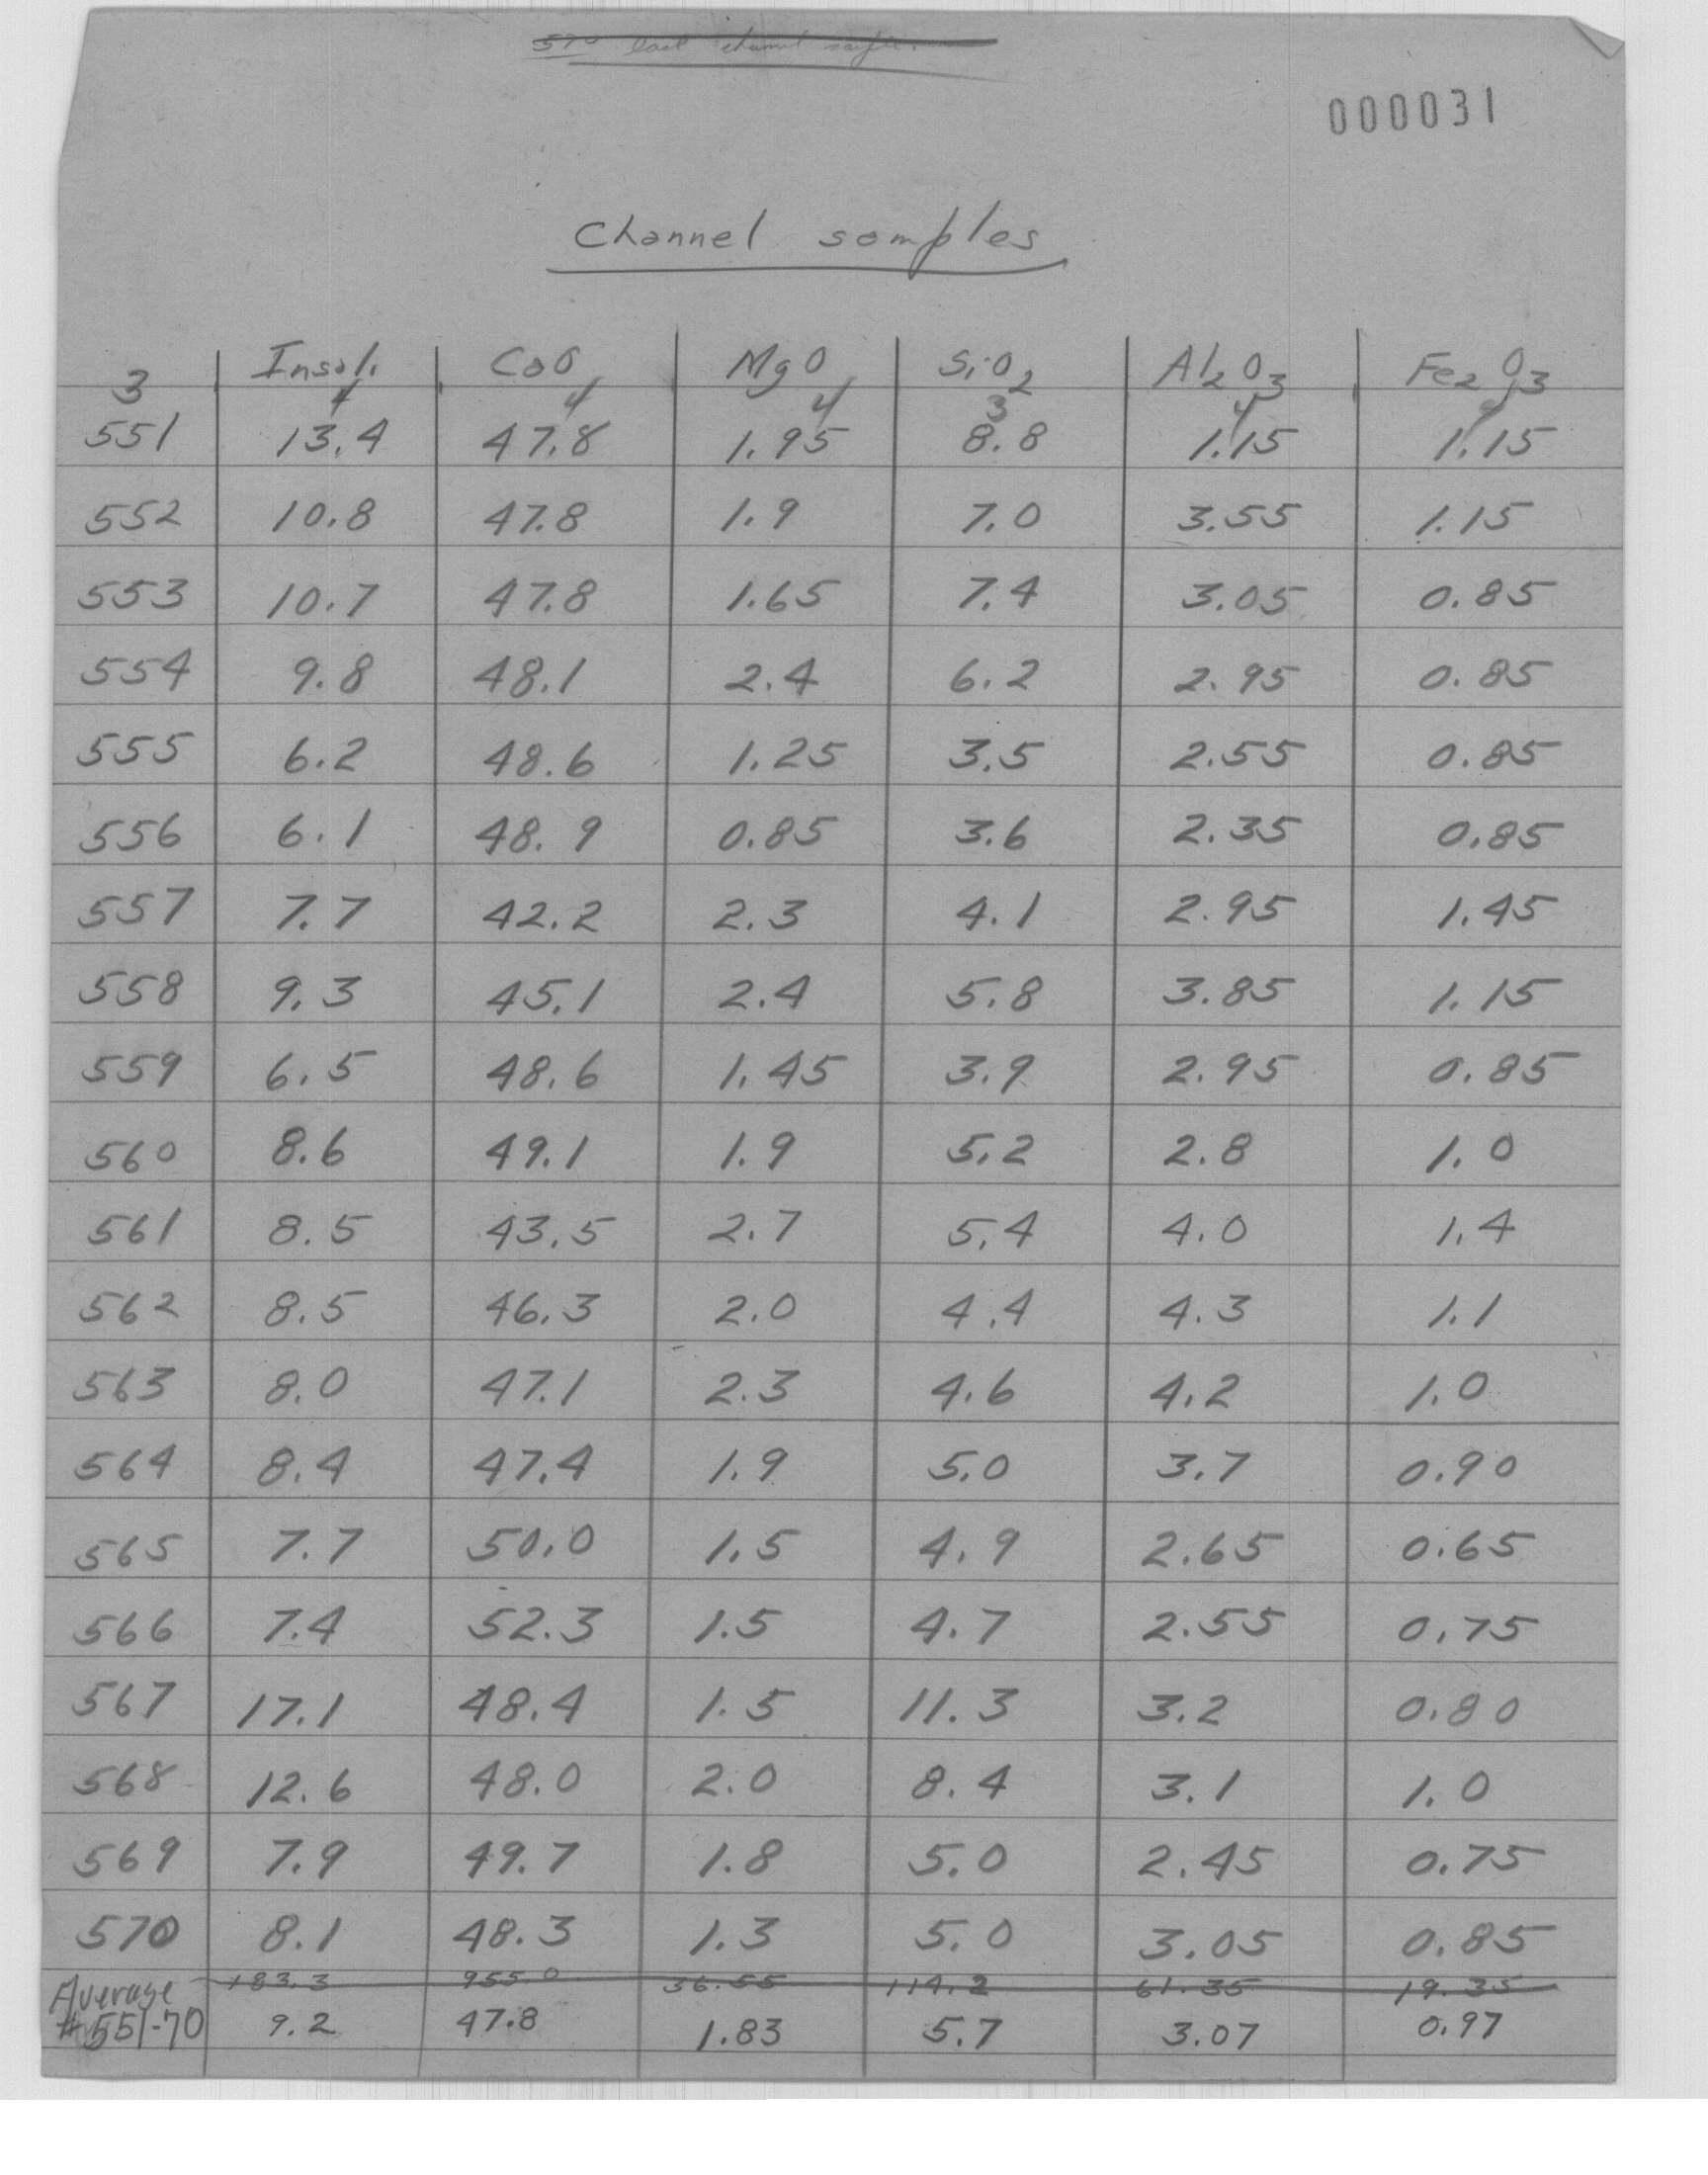 570 last channel sample.
000031
Channel samples
Insol. CaO MgO SiO2 Al2O3 Fe2O3
3 4 4 4 3 4
551 13.4 47.8 1.95 8.8 1.15 1.15
552 10.8 47.8 1.9 7.0 3.55 1.15
553 10.7 47.8 1.65 7.4 3.05 0.85
554 9.8 48.1 2.4 6.2 2.95 0.85
555 6.2 48.6 1.25 3.5 2.55 0.85
556 6.1 48.9 0.85 3.6 2.35 0.85
557 7.7 42.2 2.3 4.1 2.95 1.45
558 9.3 45.1 2.4 5.8 3.85 1.15
559 6.5 48.6 1.45 3.9 2.95 0.85
560 8.6 49.1 1.9 5.2 2.8 1.0
561 8.5 43.5 2.7 5.4 4.0 1.4
562 8.5 46.3 2.0 4.4 4.3 1.1
563 8.0 47.1 2.3 4.6 4.2 1.0
564 8.4 47.4 1.9 5.0 3.7 0.90
565 7.7 50.0 1.5 4.9 2.65 0.65
566 7.4 52.3 1.5 4.7 2.55 0.75
567 17.1 48.4 1.5 11.3 3.2 0.80
568 12.6 48.0 2.0 8.4 3.1 1.0
569 7.9 49.7 1.8 5.0 2.45 0.75
570 8.1 48.3 1.3 5.0 3.05 0.85
Average 183.3 955.0 36.55 114.2 61.35 19.35
#551-70 9.2 47.8 1.83 5.7 3.07 0.97